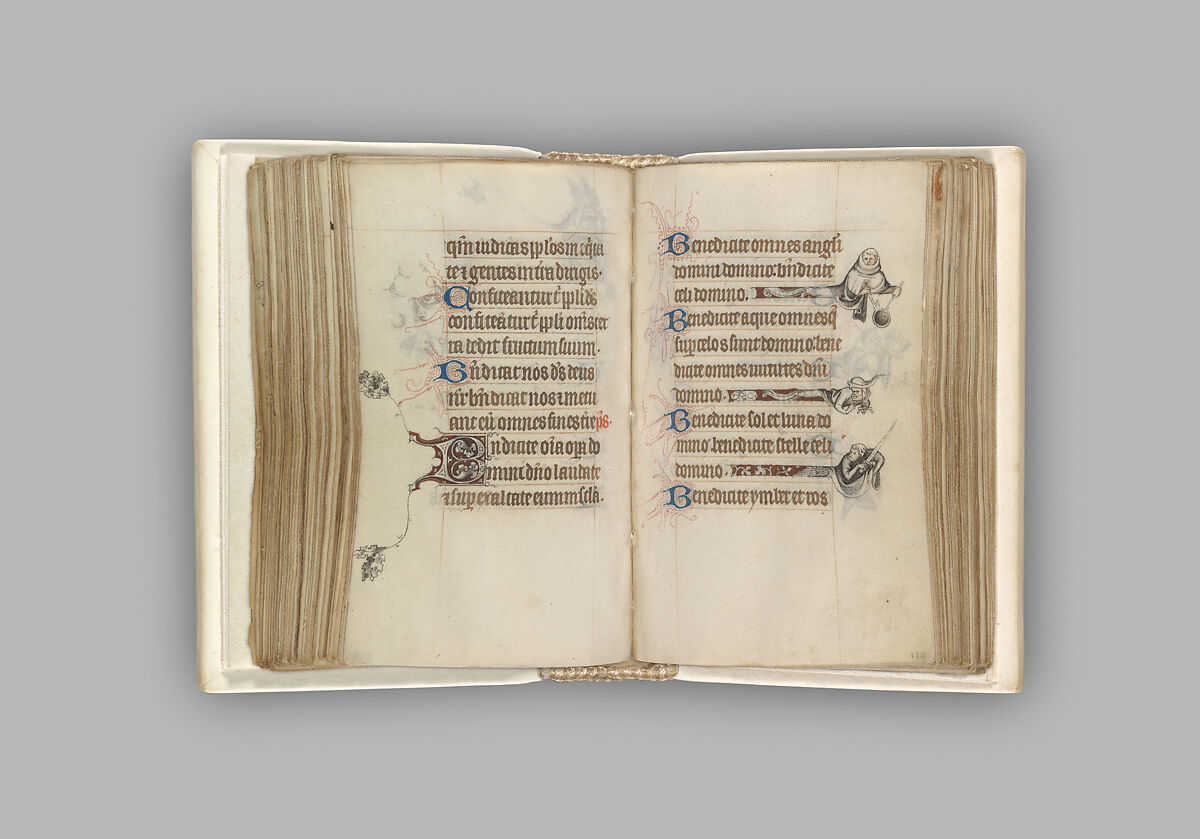 qm̄ iudicas pp̄los in equita
te ⁊ gentes in tr̄a dirigis.
Confiteantur t̄ ppl̄i ds̄
confiteātur t̄ ppl̄i om̄s ter
ra dedit fructum suum.
Bn̄dicat nos ds̄ deus
nr̄ bn̄dicat nos ⁊ metu
ant eū omnes fines tr̄e ps̄.
Bn̄dicite om̄ia opa do
mini dn̄o laudate
⁊ super exaltate eum in scl̄a.
Benedicite omnes angl̄i
domini domino: bn̄dicite
celi domino.
Benedicite aque omnes q̄
sup celos sunt domino: bene
dicite omnes uirtutes dn̄i
domino.
Benedicite sol et luna do
mino: benedicite stelle celi
domino.
Benedicite ymber et ros